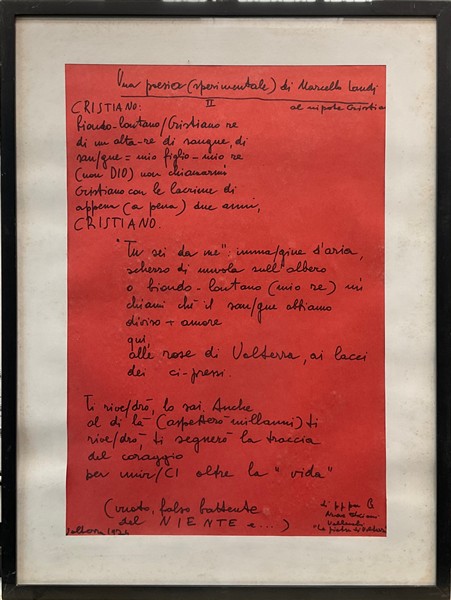 Una poesia (sperimentale) di Marcello Landi
II
al nipote Cristiano
CRISTIANO:
biondo-lontano/Cristiano re
di un'alta-re di sangue, di
san/gue = mio figlio-mio re
(non DIO) non chiamarmi
Cristiano con le lacrime di
appena (a pena) due anni,
CRISTIANO.
"Tu sei da me": imma/gine d'aria,
scherzo di nuvola sull'albero
o biondo-lontano (mio re) mi
chiami chi il san/gue abbiamo
diviso + amore
qui,
alle rose di Volterra, ai lacci
dei ci-pressi.
Ti rive/drò, lo sai. Anche
al di là (aspetterò millanni) ti
rive/drò, ti segnerò la traccia
del coraggio
per unir/CI oltre la "vita"
(vuoto, falso battente
del NIENTE e...)